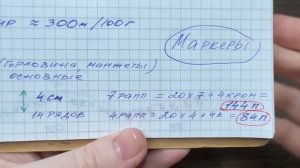 ≈ 300м/100г
Маркеры
(горловина, манжеты)
основные
4 см
7 рапп = 20 х 7 + 4 кром =
144 п
14 рядов
4 рапп = 20 х 4 + 4к = 84 п